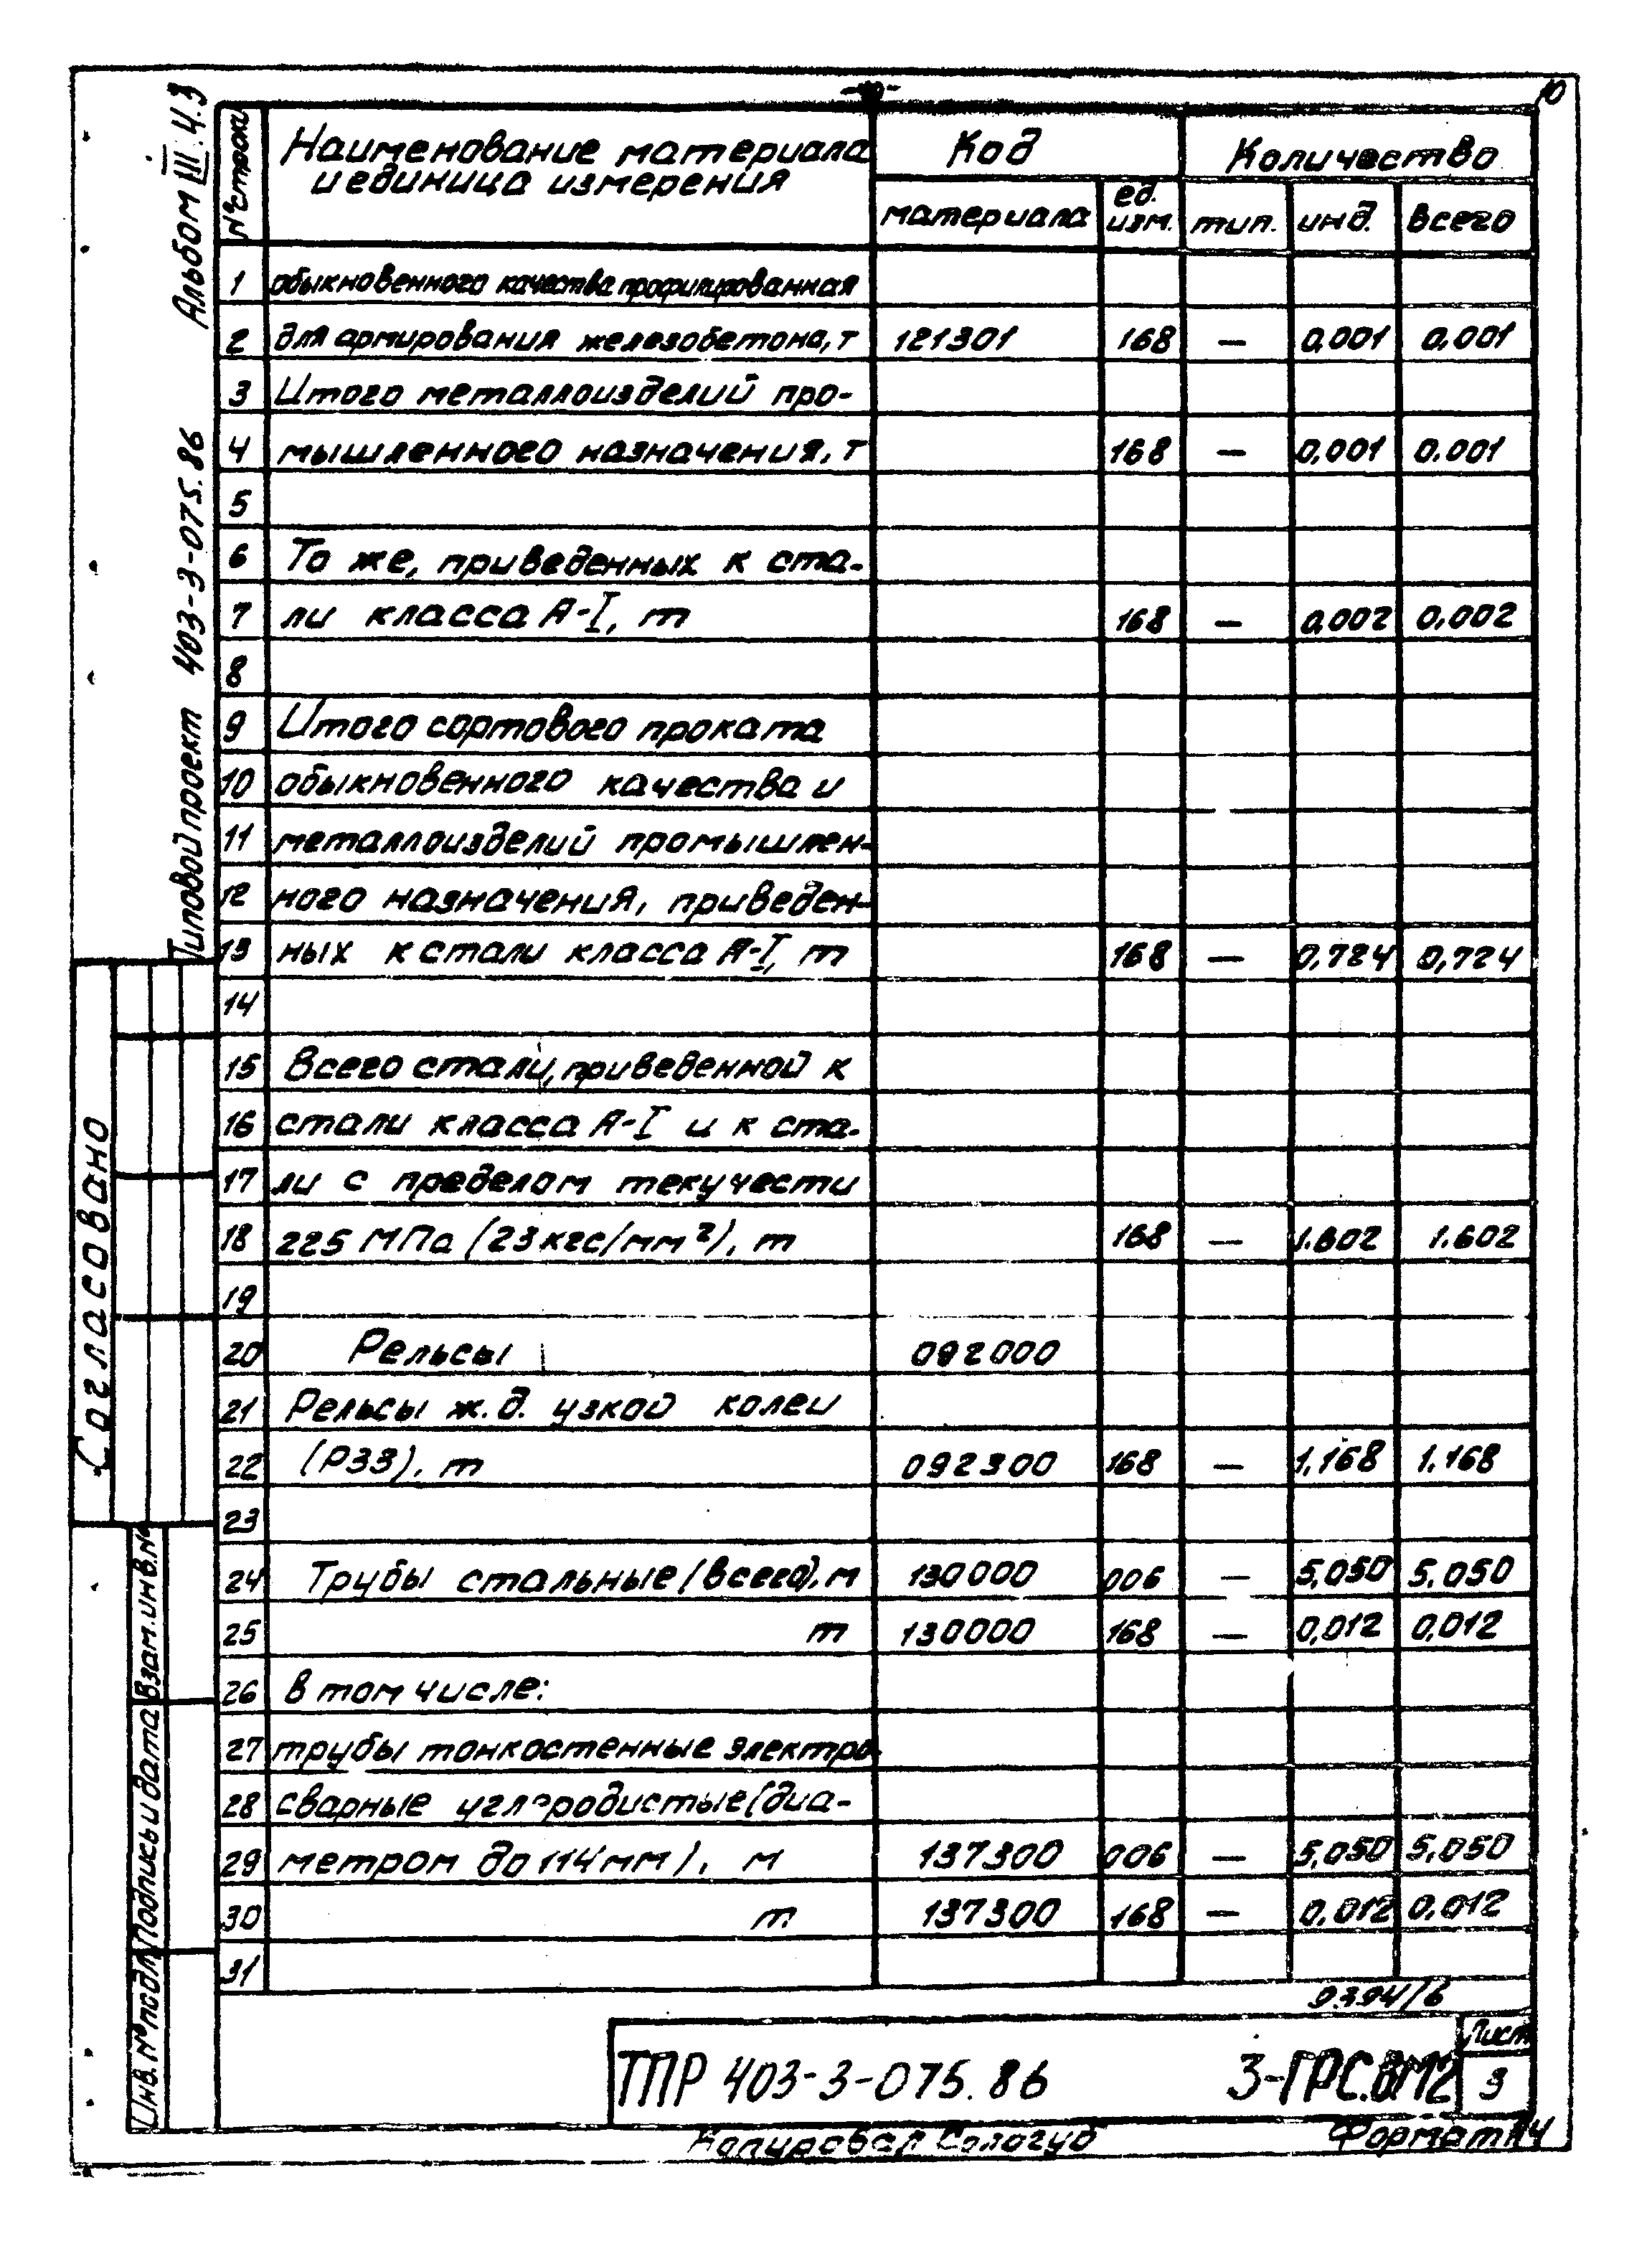 -10-
10
Альбом III.4.3
Типовой проект 403-3-075.86
№ строки
Наименование материала
и единица измерения
Код
Количество
материала
ед. изм.
тип.
инд.
всего
1 обыкновенного качества профилированная
2 для армирования железобетона, т 121301 168 — 0,001 0,001
3 Итого металлоизделий про-
4 мышленного назначения, т 168 — 0,001 0.001
5
6 То же, приведенных к ста-
7 ли класса А-I, т 168 — 0,002 0,002
8
9 Итого сортового проката
10 обыкновенного качества и
11 металлоизделий промышлен-
12 ного назначения, приведен-
13 ных к стали класса А-I, т 168 — 0,724 0,724
14
15 Всего стали, приведенной к
16 стали класса А-I и к ста-
17 ли с пределом текучести
18 225 МПа (23 кгс/мм²), т 168 — 1.602 1.602
19
20 Рельсы 092000
21 Рельсы ж.д. узкой колеи
22 (Р33), т 092300 168 — 1,168 1.168
23
24 Трубы стальные (всего), м 130000 006 — 5,050 5.050
25 т 130000 168 — 0,012 0,012
26 в том числе:
27 трубы тонкостенные электро-
28 сварные углеродистые (диа-
29 метром до 114 мм), м 137300 006 — 5,050 5,050
30 т 137300 168 — 0,012 0,012
31
Согласовано
Взам. инв. №
Подпись и дата
Инв. № подл.
9394/6
ТПР 403-3-075.86 3-ГРС.ВМ2
Лист
3
Копировал Сологуб
Формат А4